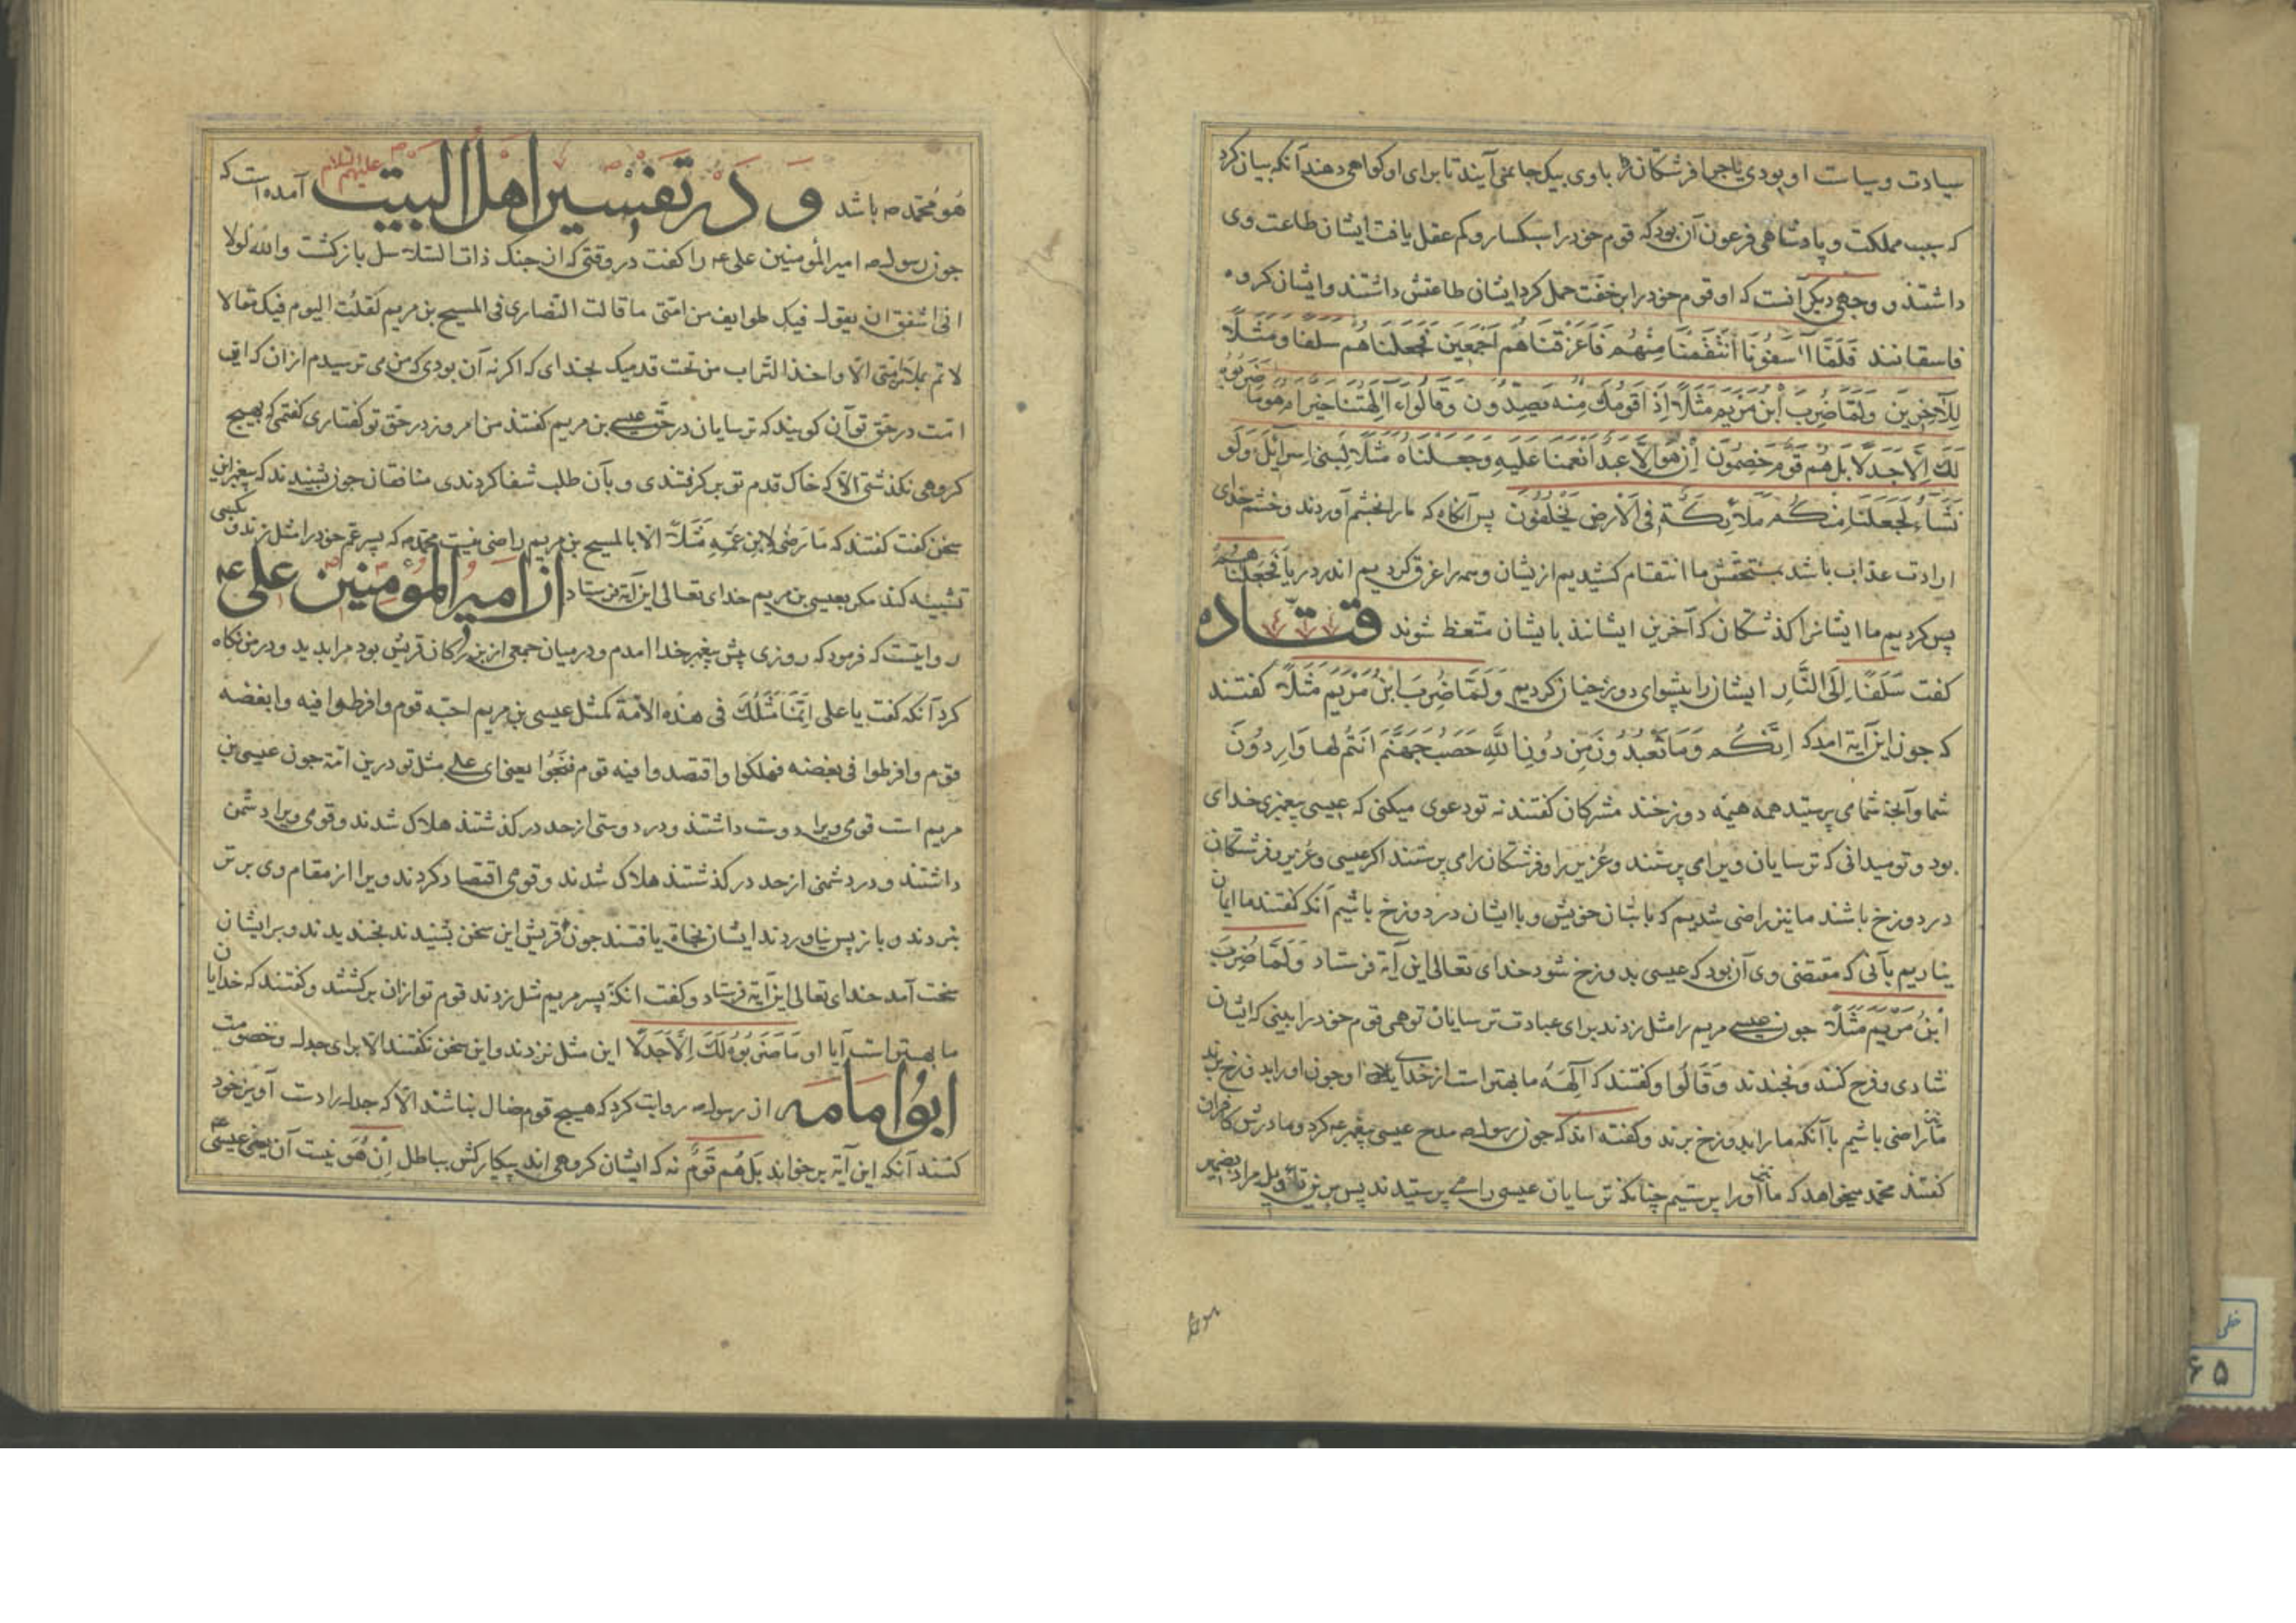 سیادت و سیاست او بودی یا چرا فرشتکان با وی بیک جا نمی آیند تا برای او کواهی دهند آنکه بیان کرد
که سبب مملکت و پادشاهی فرعون آن بود که قوم خود را سبکسار و کم عقل یافت ایشان طاعت وی
داشتند و وجهی دیکر آنست که او قوم خود را بر خفت حمل کرد ایشان طاعتش داشتند و ایشان کروه
فاسقانند فَلَمَّا آسَفُونَا انْتَقَمْنَا مِنْهُمْ فَاَغْرَقْنَاهُم اَجْمَعِینَ فَجَعَلْنَاهُم سلفا وَمَثَلًا
لِلْآخِرِینَ وَلَمَّا ضُرِبَ ابْنُ مَرْیَمَ مَثَلًا اِذَا قَوْمُكَ مِنْه یَصِدُّونَ وَقَالُوا ءَآلِهَتُنَا خَیْرٌ اَمْ هُوَ مَا ضَرَبُوهُ
لَكَ اِلَّا جَدَلًا بَلْ هُم قَوْمٌ خَصِمُونَ اِنْ هُوَ اِلَّا عَبْدٌ اَنْعَمْنَا عَلَیْهِ وَجَعَلْنَاهُ مَثَلًا لِبَنِی اِسْرَائِلَ وَلَوْ
نَشَآءُ لَجَعَلْنَا مِنْكُمْ مَلَائِكَةً فِی الْاَرْضِ یَخْلُفُونَ پس آنکاه که ما را بخشم آوردند و خشم خدای
ارادت عذاب باشد بمستحقش ما انتقام کشیدیم ازیشان و همه را غرق کردیم اندر دریا فَجَعَلْنَاهُمْ
پس کردیم ما ایشانرا کذشتکان که آخرین ایشانند بایشان متعظ شوند قتاده
کفت سَلَفًا اِلَی النَّارِ ایشان را پیشوای دوزخیان کردیم وَلَمَّا ضُرِبَ ابْنُ مَرْیَمَ مَثَلًا کفتند
که جون این آیة امد که اِنَّكُم وَمَا تَعْبُدُونَ مِن دُونِ اللَّهِ حَصَبُ جَهَنَّمَ اَنْتُم لَها وَارِدُونَ
شما وآنجه شما می پرستید همه هیمه دوزخند مشرکان کفتند نه تو دعوی میکنی که عیسی پیغمبری خدای
بود و تو میدانی که ترسایان ویرا می پرستند و عُزیر را و فرشتکان را می پرستند اکر عیسی و عُزیر و فرشتکان
در دوزخ باشند ما نیز راضی شدیم که با بتان خویش و با ایشان در دوزخ باشیم آنکه کفتند ما ایمان
نیاریم بآنی که مقتضی وی آن بود که عیسی بدوزخ شود خدای تعالی این آیة فرستاد وَلَمَّا ضُرِبَ
ابْنُ مَرْیَمَ مَثَلًا جون عیسی مریم را مثل زدند برای عبادت ترسایان توهی قوم خود را بینی که ایشان
شادی و فرح کنند و بخندند وَقَالُوا و کفتند که آلهَهٔ ما بهتر است از خدای او جون او را بدوزخ برند
ما نیز راضی باشیم با آنکه ما را بدوزخ برند و کفته اند که جون رسول ص مدح عیسی پیغمبر ع کرد و مادرش کافران
کفتند محمد میخواهد که ما او را پرستیم چنانکه ترسایان عیسی را می پرستیدند پس برین تأویل مراد بضمیر
هُوَ مُحَمّد ص باشد و در تفسیر اهل البیت علیهم السلام آمده است که
جون رسول ص امیر المؤمنین علی ع را کفت در وقتی که از جنک ذات السلاسل باز کشت والله لولا
انی اشفق ان یقول فیك طوایف من امتی ما قالت النصاری فی المسیح بن مریم لقلت الیوم فیك مقالا
لا تمر بملأ من امتی الا واخذ التراب من تحت قدمیك بخدای که اکر نه آن بودی که من می ترسیدم از آن که
امت در حق تو آن کویند که ترسایان در حق عیسی بن مریم کفتند من امروز در حق تو کفتاری کفتمی که بهیچ
کروهی نکذشتی الا که خاك قدم تو بر کرفتندی و بآن طلب شفا کردندی منافقان جون بشنیدند که پیغمبر این
سخن کفت کفتند که مَا رَضِیَ لِابنِ عَمِّهِ مَثَلًا الا بالمسیح بن مریم راضی نیست محمد ص که پسر عم خود را مثل زند و بکسی
تشبیه کند مکر بعیسی بن مریم خدای تعالی این آیة فرستاد از امیر المؤمنین علی ع
روایتست که فرمود که روزی پیش پیغمبر خدا امدم و در میان جمعی از بزرکان قریش بود مرا بدید و در من نکاه
کرد آنکه کفت یا علی اِنَّمَا مَثَلُكَ فی هذه الامة کمثل عیسی بن مریم احبّه قوم وافرطوا فیه وابغضه
قوم وافرطوا فی بغضه فهلکوا واقتصدوا فیه قوم فنجوا یعنی ای علی مثل تو درین امّة جون عیسی بن
مریم است قومی ویرا دوست داشتند و در دوستی از حد در کذشتند هلاك شدند و قومی ویرا دشمن
داشتند و در دشمنی از حد در کذشتند هلاك شدند و قومی اقتصاد کردند ویرا از مقام وی برتر
نبردند و باز پس نیاوردند ایشان نجاة یافتند جون قریش این سخن بشنیدند بخندیدند و بر ایشان
سخت آمد خدای تعالی این آیة فرستاد و کفت آنکه پسر مریم مثل زدند قوم تو ازان برکشتند و کفتند که خدایان
ما بهتر است آیا او مَا ضَرَبُوهُ لَكَ اِلَّا جَدَلًا این مثل نزدند و این سخن نکفتند الا برای جدل و خصومت
ابو امامه از رسول ص روایت کرد که هیچ قوم ضال نباشند الا که جدل را دست آویز خود
کنند آنکه این آیة بر خواند بَلْ هُم قَوْمٌ نه که ایشان کروهی اند پیکارکش بباطل اِنْ هُوَ نیست آن یعنی عیسی ع
خطی
۶۵